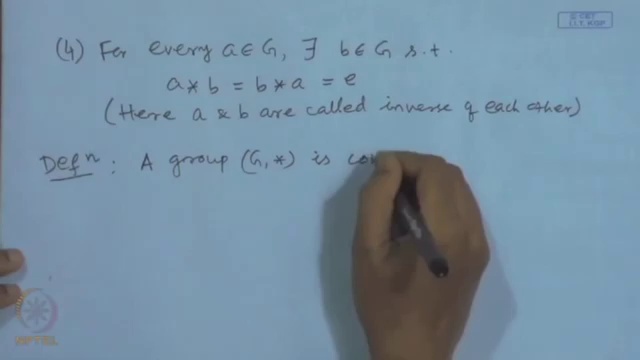 © CET
I.I.T. KGP
(4) For every a ∈ G, ∃ b ∈ G s.t.
a * b = b * a = e
(Here a & b are called inverse of each other)
Defⁿ : A group (G, *) is co
NPTEL